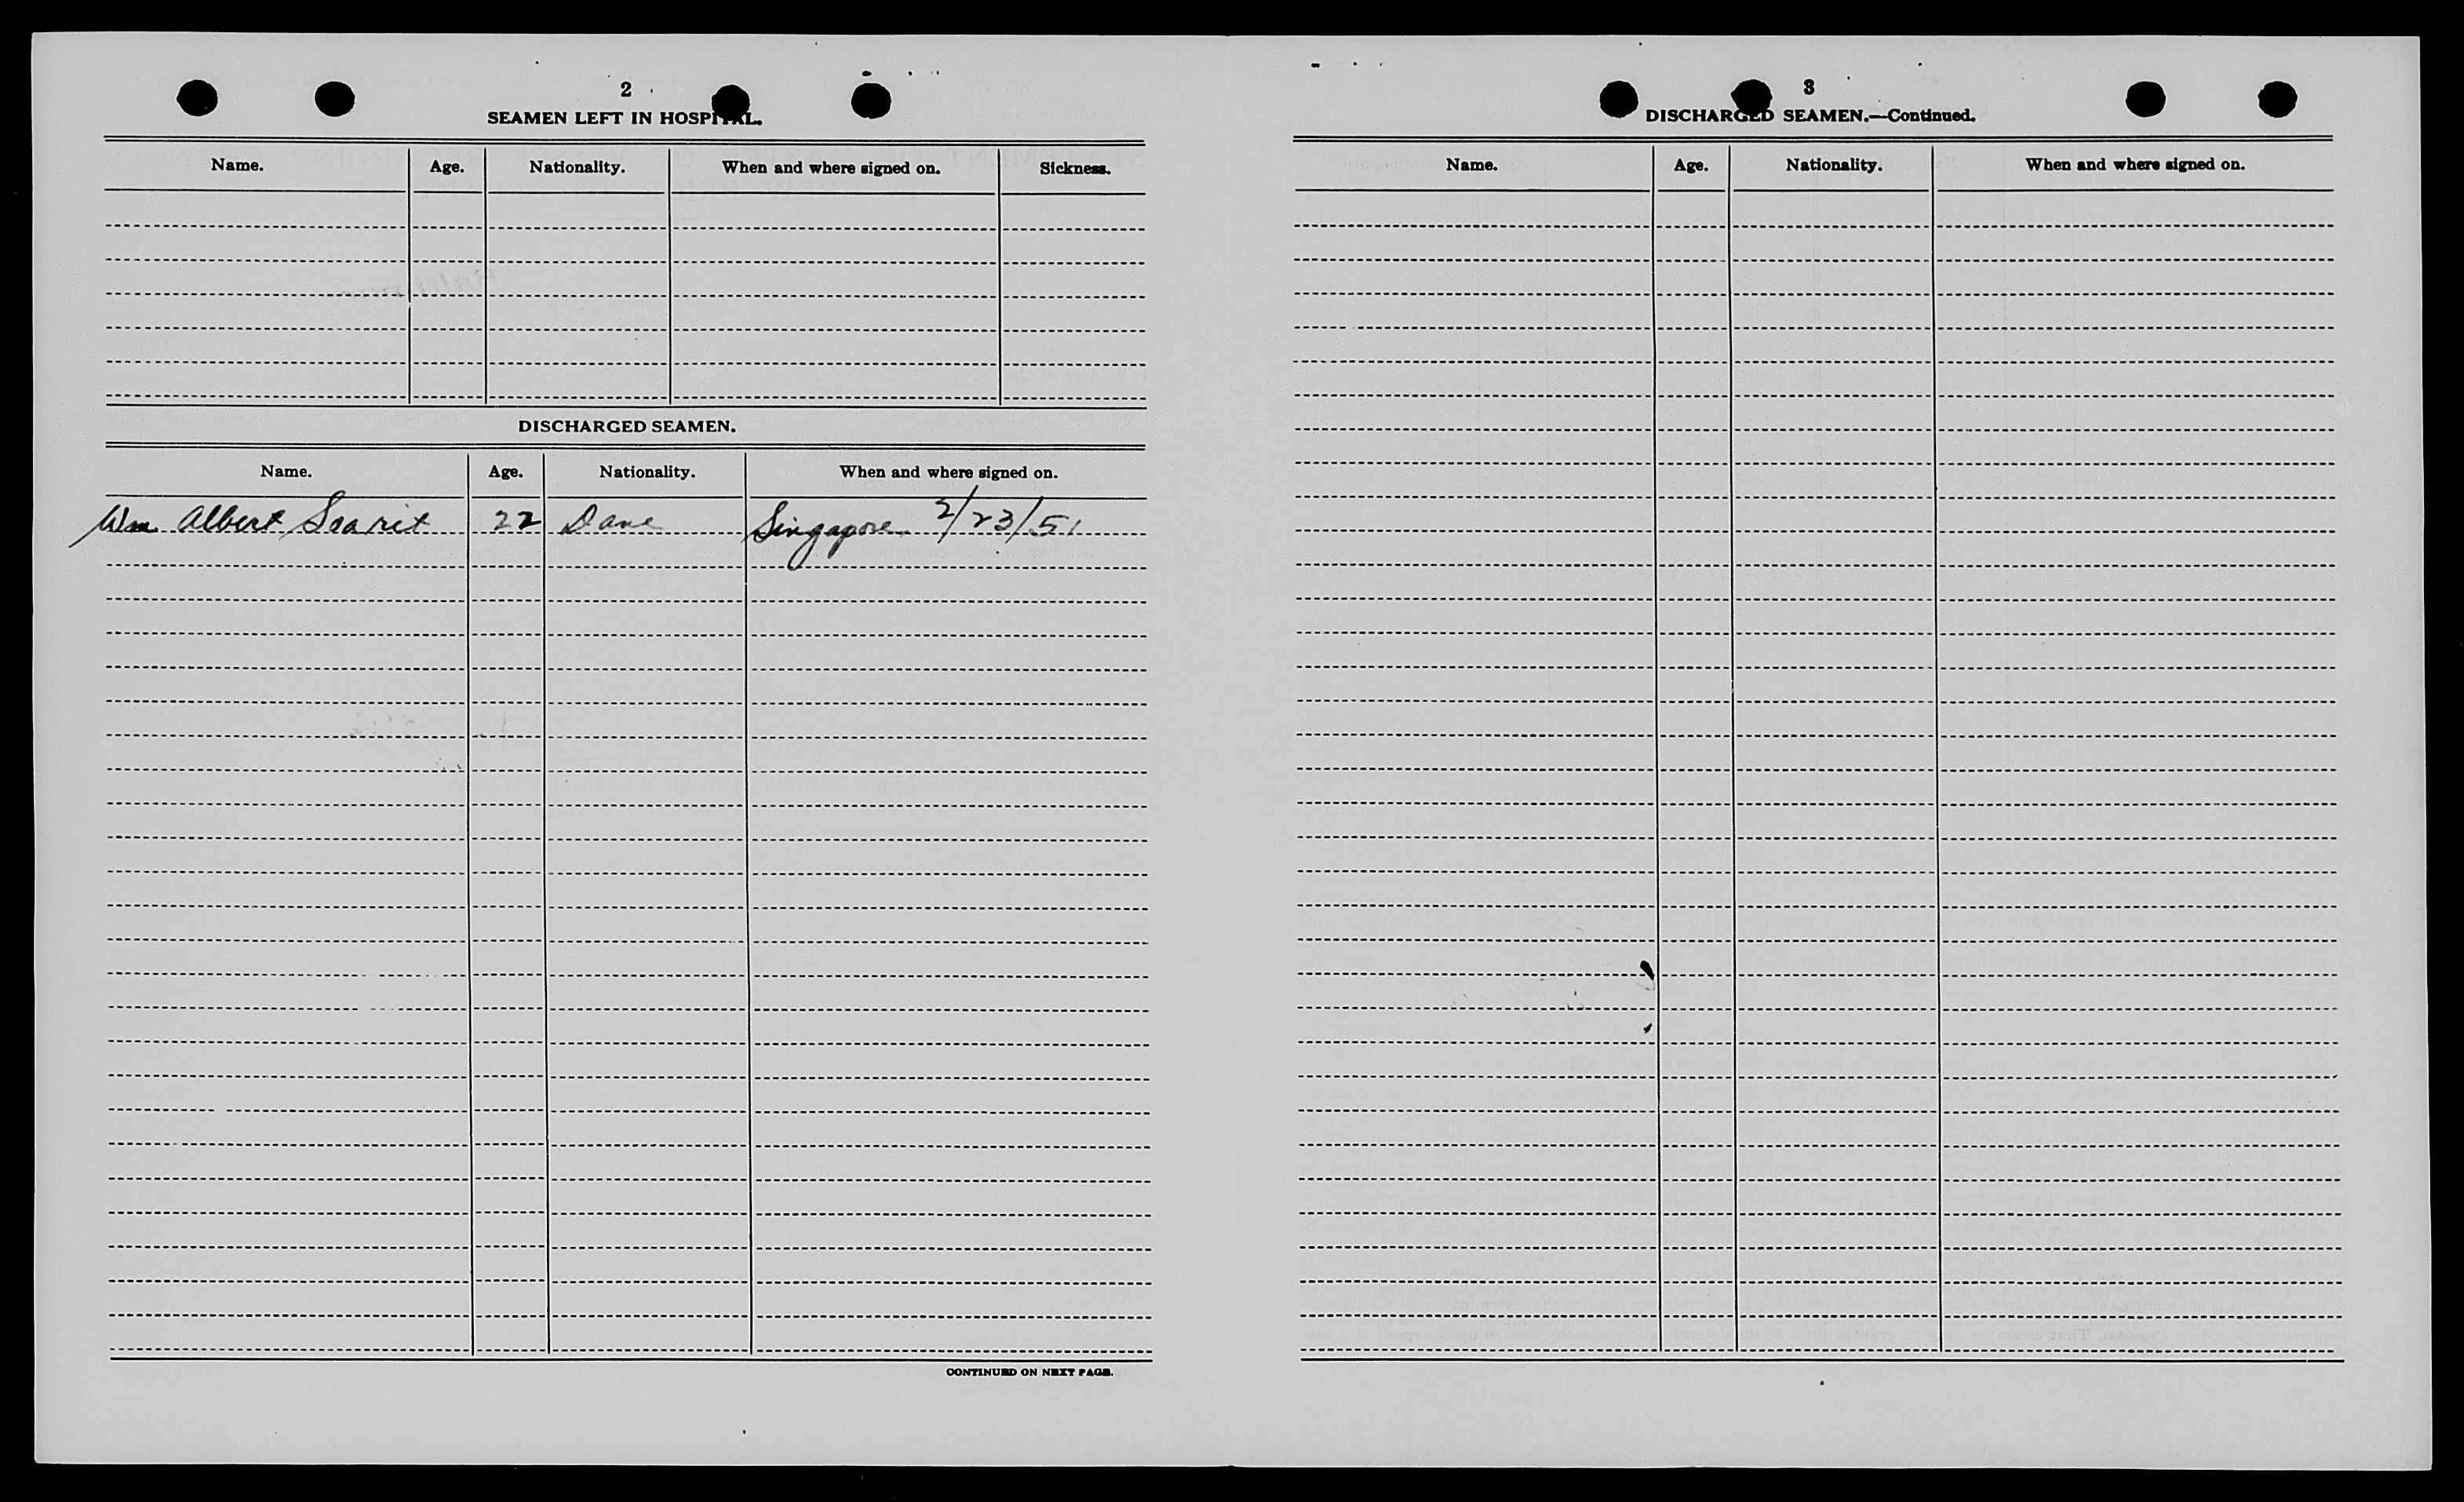 2
SEAMEN LEFT IN HOSPITAL.
Name. Age. Nationality. When and where signed on. Sickness.
DISCHARGED SEAMEN.
Name. Age. Nationality. When and where signed on.
Wm Albert 22 Dane Singapore 2/23/51
CONTINUED ON NEXT PAGE.
3
DISCHARGED SEAMEN.—Continued.
Name. Age. Nationality. When and where signed on.